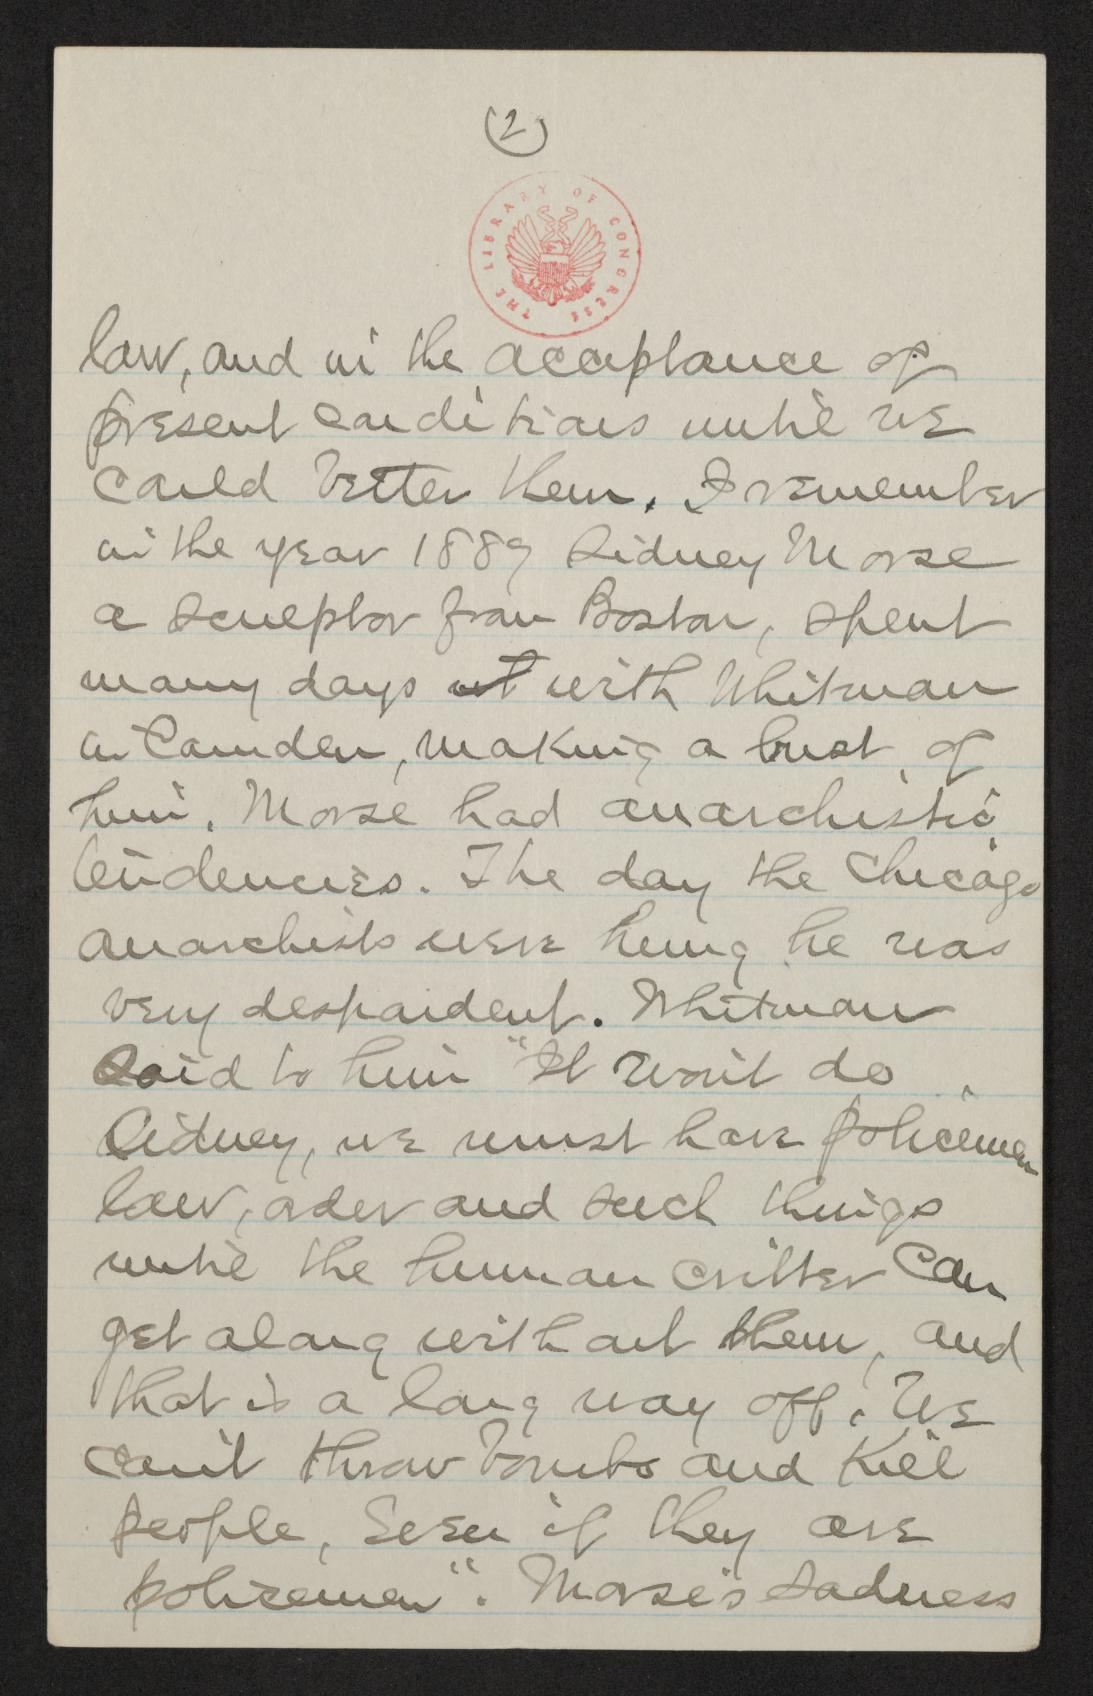 (2)
THE LIBRARY OF CONGRESS
law, and in the acceptance of
present conditions until we
could better them. I remember
in the year 1889 Sidney Morse
a sculptor from Boston, spent
many days wt with Whitman
in Camden, making a bust of
him. Morse had anarchistic
tendencies. The day the Chicago
anarchists were hung he was
very despondent. Whitman
said to him "It won't do
Sidney, we must have policemen
law, order and such things
until the human critter can
get along without them, and
that is a long way off. We
can't throw bombs and kill
people, even if they are
policemen". Morse's sadness